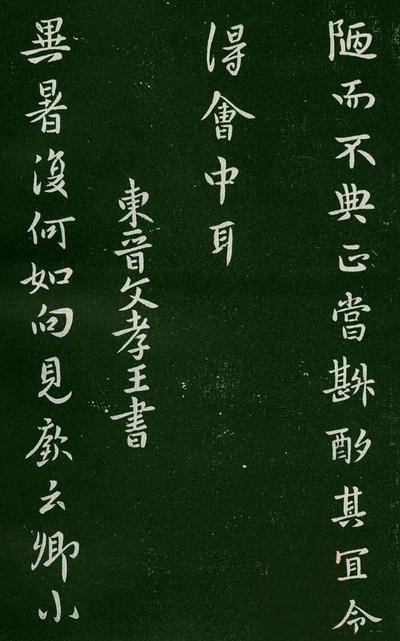 陋而不典正當斟酌其宜令
得會中耳
東晉文孝王書
異暑復何如向見歡云卿小